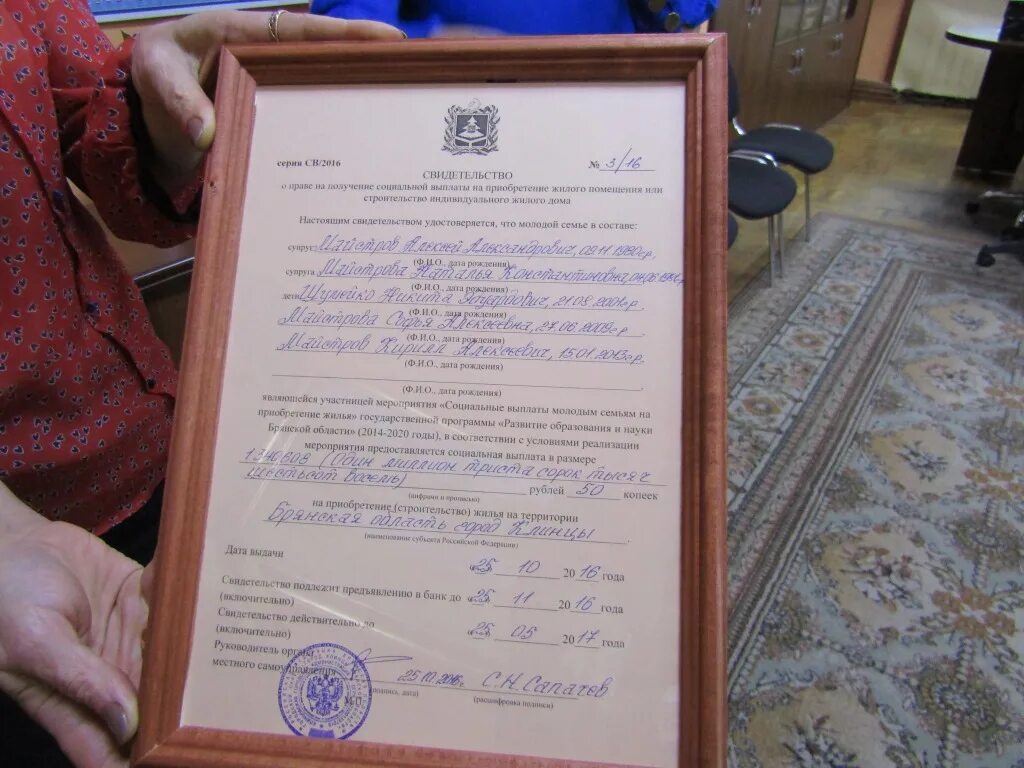 серия СВ/2016 № 3/16
СВИДЕТЕЛЬСТВО
о праве на получение социальной выплаты на приобретение жилого помещения или
строительство индивидуального жилого дома
Настоящим свидетельством удостоверяется, что молодой семье в составе:
супруг Майстров Алексей Александрович, 09.11.1980г.р,
(Ф.И.О., дата рождения)
супруга Майстрова Наталья Константиновна,
(Ф.И.О., дата рождения)
дети Шулейко Никита Эдуардович,
(Ф.И.О., дата рождения)
Майстрова Софья Алексеевна, 27.06.2009г.р
(Ф.И.О., дата рождения)
Майстров Кирилл Алексеевич, 15.01.2013г.р.
(Ф.И.О., дата рождения)
(Ф.И.О., дата рождения)
являющейся участницей мероприятия «Социальные выплаты молодым семьям на
приобретение жилья» государственной программы «Развитие образования и науки
Брянской области» (2014-2020 годы), в соответствии с условиями реализации
мероприятия предоставляется социальная выплата в размере
1340608 (Один миллион триста сорок тысяч
шестьсот восемь) рублей 50 копеек
(цифрами и прописью)
на приобретение (строительство) жилья на территории
Брянская область город Клинцы
(наименование субъекта Российской Федерации)
Дата выдачи «25» 10 2016 года
Свидетельство подлежит предъявлению в банк до «25» 11 2016 года
(включительно)
Свидетельство действительно до «25» 05 2017 года
(включительно)
Руководитель органа
местного самоуправления 25.10.2016г. С.Н.Сапачев
(подпись, дата) (расшифровка подписи)
М.П.